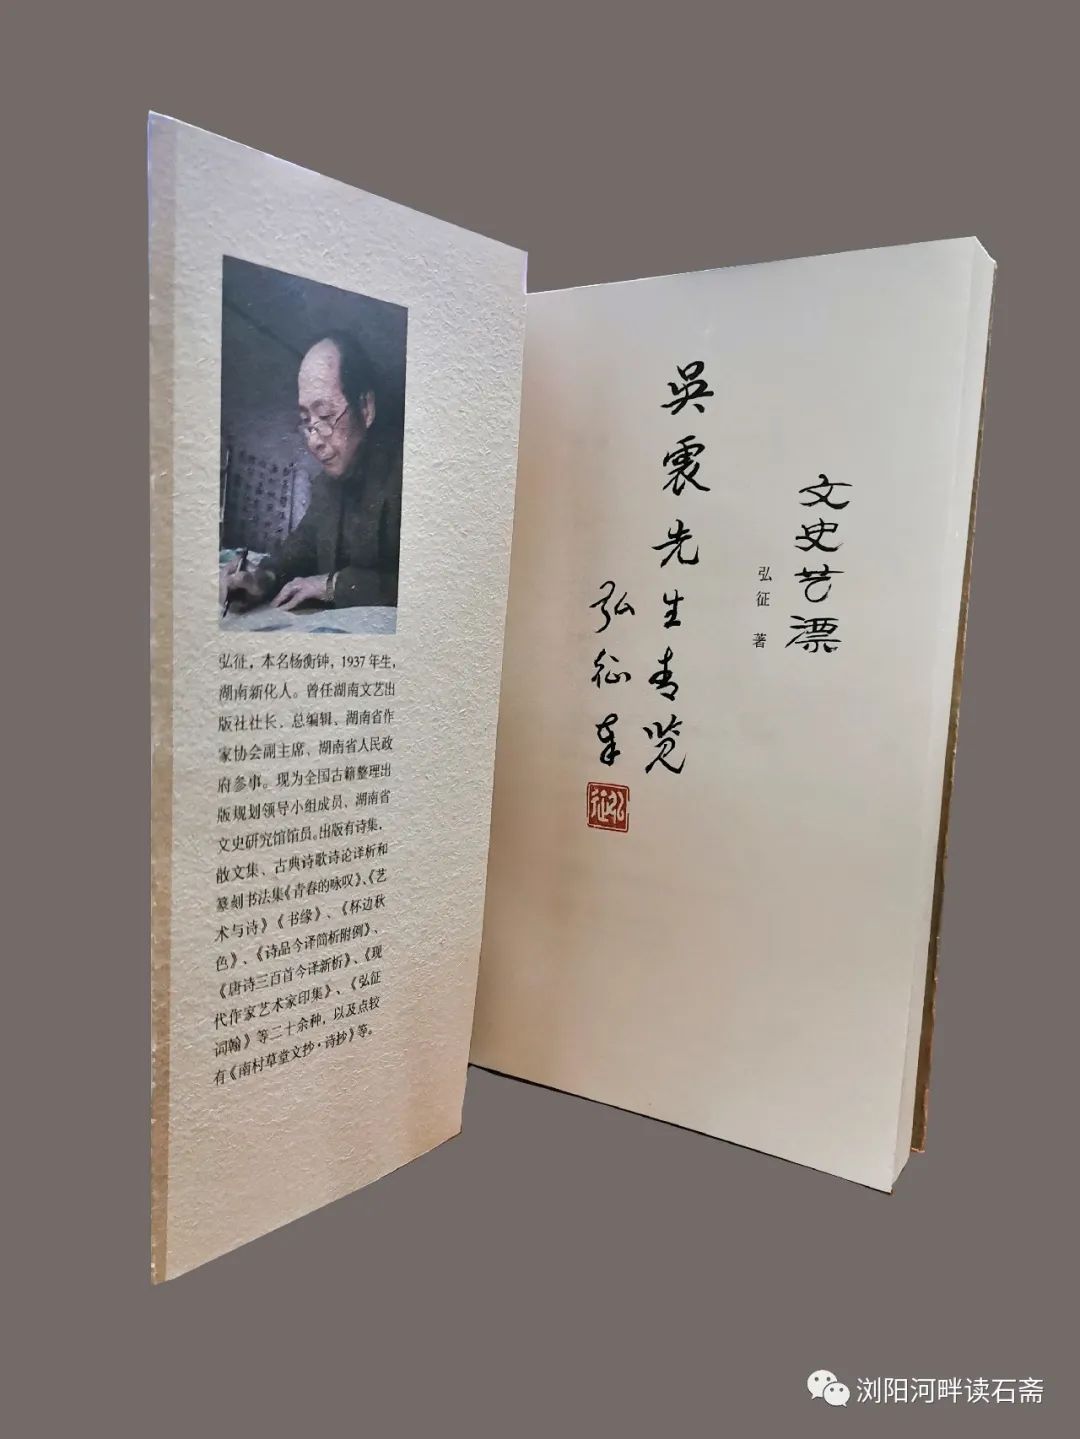 弘征，本名杨衡钟，1937年生，
湖南新化人。曾任湖南文艺出
版社社长、总编辑、湖南省作
家协会副主席、湖南省人民政
府参事。现为全国古籍整理出
版规划领导小组成员、湖南省
文史研究馆馆员。出版有诗集，
散文集、古典诗歌诗论译析和
篆刻书法集《青春的咏叹》、《艺
术与诗》《书缘》、《杯边秋
色》、《诗品今译简析附例》、
《唐诗三百首今译新析》、《现
代作家艺术家印集》、《弘征
词翰》等二十余种，以及点较
有《南村草堂文抄·诗抄》等。
文史艺漂
弘征 著
吳震先生青览
弘征奉
弘征
浏阳河畔读石斋